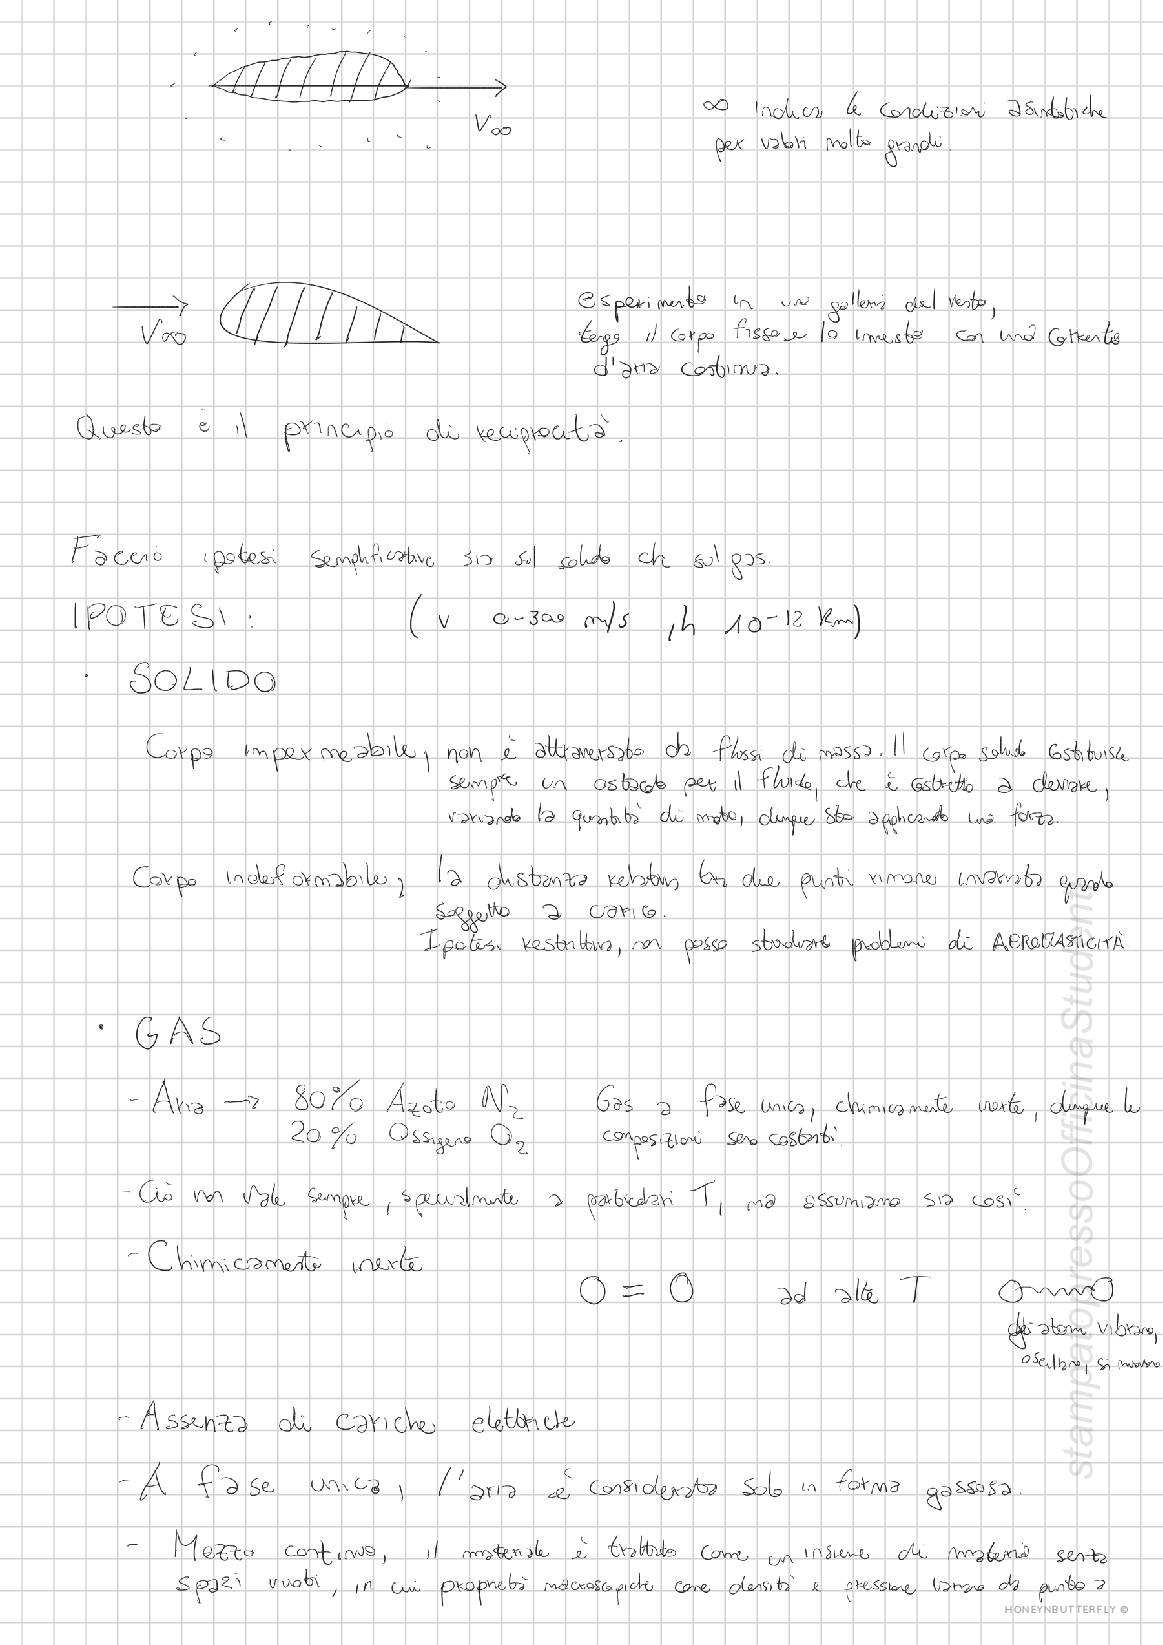 V∞
∞ indica le condizioni asintotiche
per valori molto grandi.
V∞
esperimento in una galleria del vento,
tengo il corpo fisso e lo investo con una corrente
d'aria continua.
Questo è il principio di reciprocità.
Faccio ipotesi semplificative sia sul solido che sul gas.
IPOTESI: (v 0-300 m/s, h 10-12 Km)
· SOLIDO
Corpo impermeabile, non è attraversato da flussi di massa. Il corpo solido costituisce
sempre un ostacolo per il fluido, che è costretto a deviare,
variando la quantità di moto, dunque sto applicando una forza.
Corpo indeformabile, la distanza relativa tra due punti rimane invariata quando
soggetto a carico.
Ipotesi restrittiva, non posso studiare problemi di AEROELASTICITÀ
· GAS
- Aria → 80% Azoto N₂ Gas a fase unica, chimicamente inerte, dunque le
20% Ossigeno O₂ composizioni sono costanti.
- Ciò non vale sempre, specialmente a particolari T, ma assumiamo sia così.
- Chimicamente inerte
O = O ad alte T
gli atomi vibrano,
oscillano, si muovono
- Assenza di cariche elettriche
- A fase unica, l'aria è considerata solo in forma gassosa.
- Mezzo continuo, il materiale è trattato come un insieme di materia senza
spazi vuoti, in cui proprietà macroscopiche come densità e pressione variano da punto a
HONEYNBUTTERFLY ©
stampatopressoOfficinaStudenti